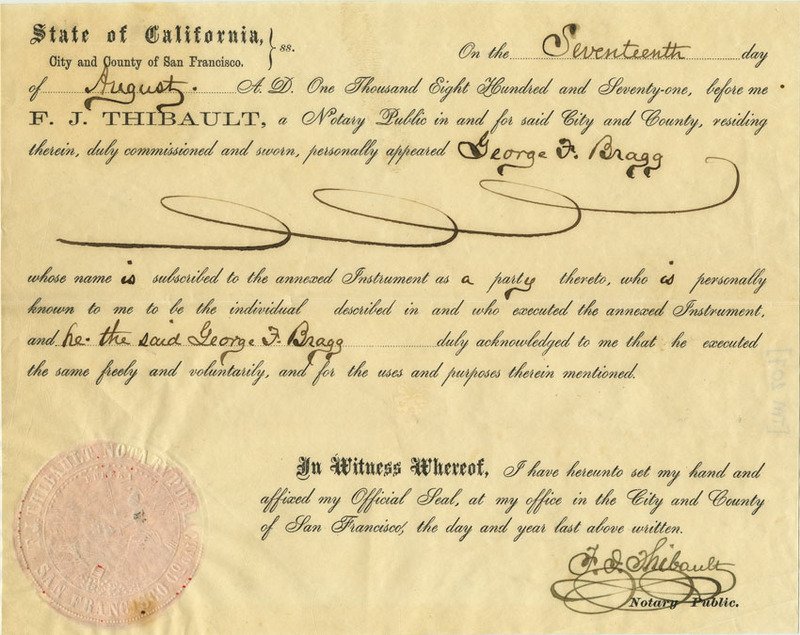 State of California, } ss.
City and County of San Francisco.
On the Seventeenth day
of August. A. D. One Thousand Eight Hundred and Seventy-one, before me
F. J. THIBAULT, a Notary Public in and for said City and County, residing
therein, duly commissioned and sworn, personally appeared George F. Bragg
whose name is subscribed to the annexed Instrument as a party thereto, who is personally
known to me to be the individual described in and who executed the annexed Instrument,
and he. the said George F. Bragg duly acknowledged to me that he executed
the same freely and voluntarily, and for the uses and purposes therein mentioned.
In Witness Whereof, I have hereunto set my hand and
affixed my Official Seal, at my office in the City and County
of San Francisco, the day and year last above written.
F. J. Thibault
Notary Public.
THIBAULT, NOTARY PUBLIC
SAN FRANCISCO CO.